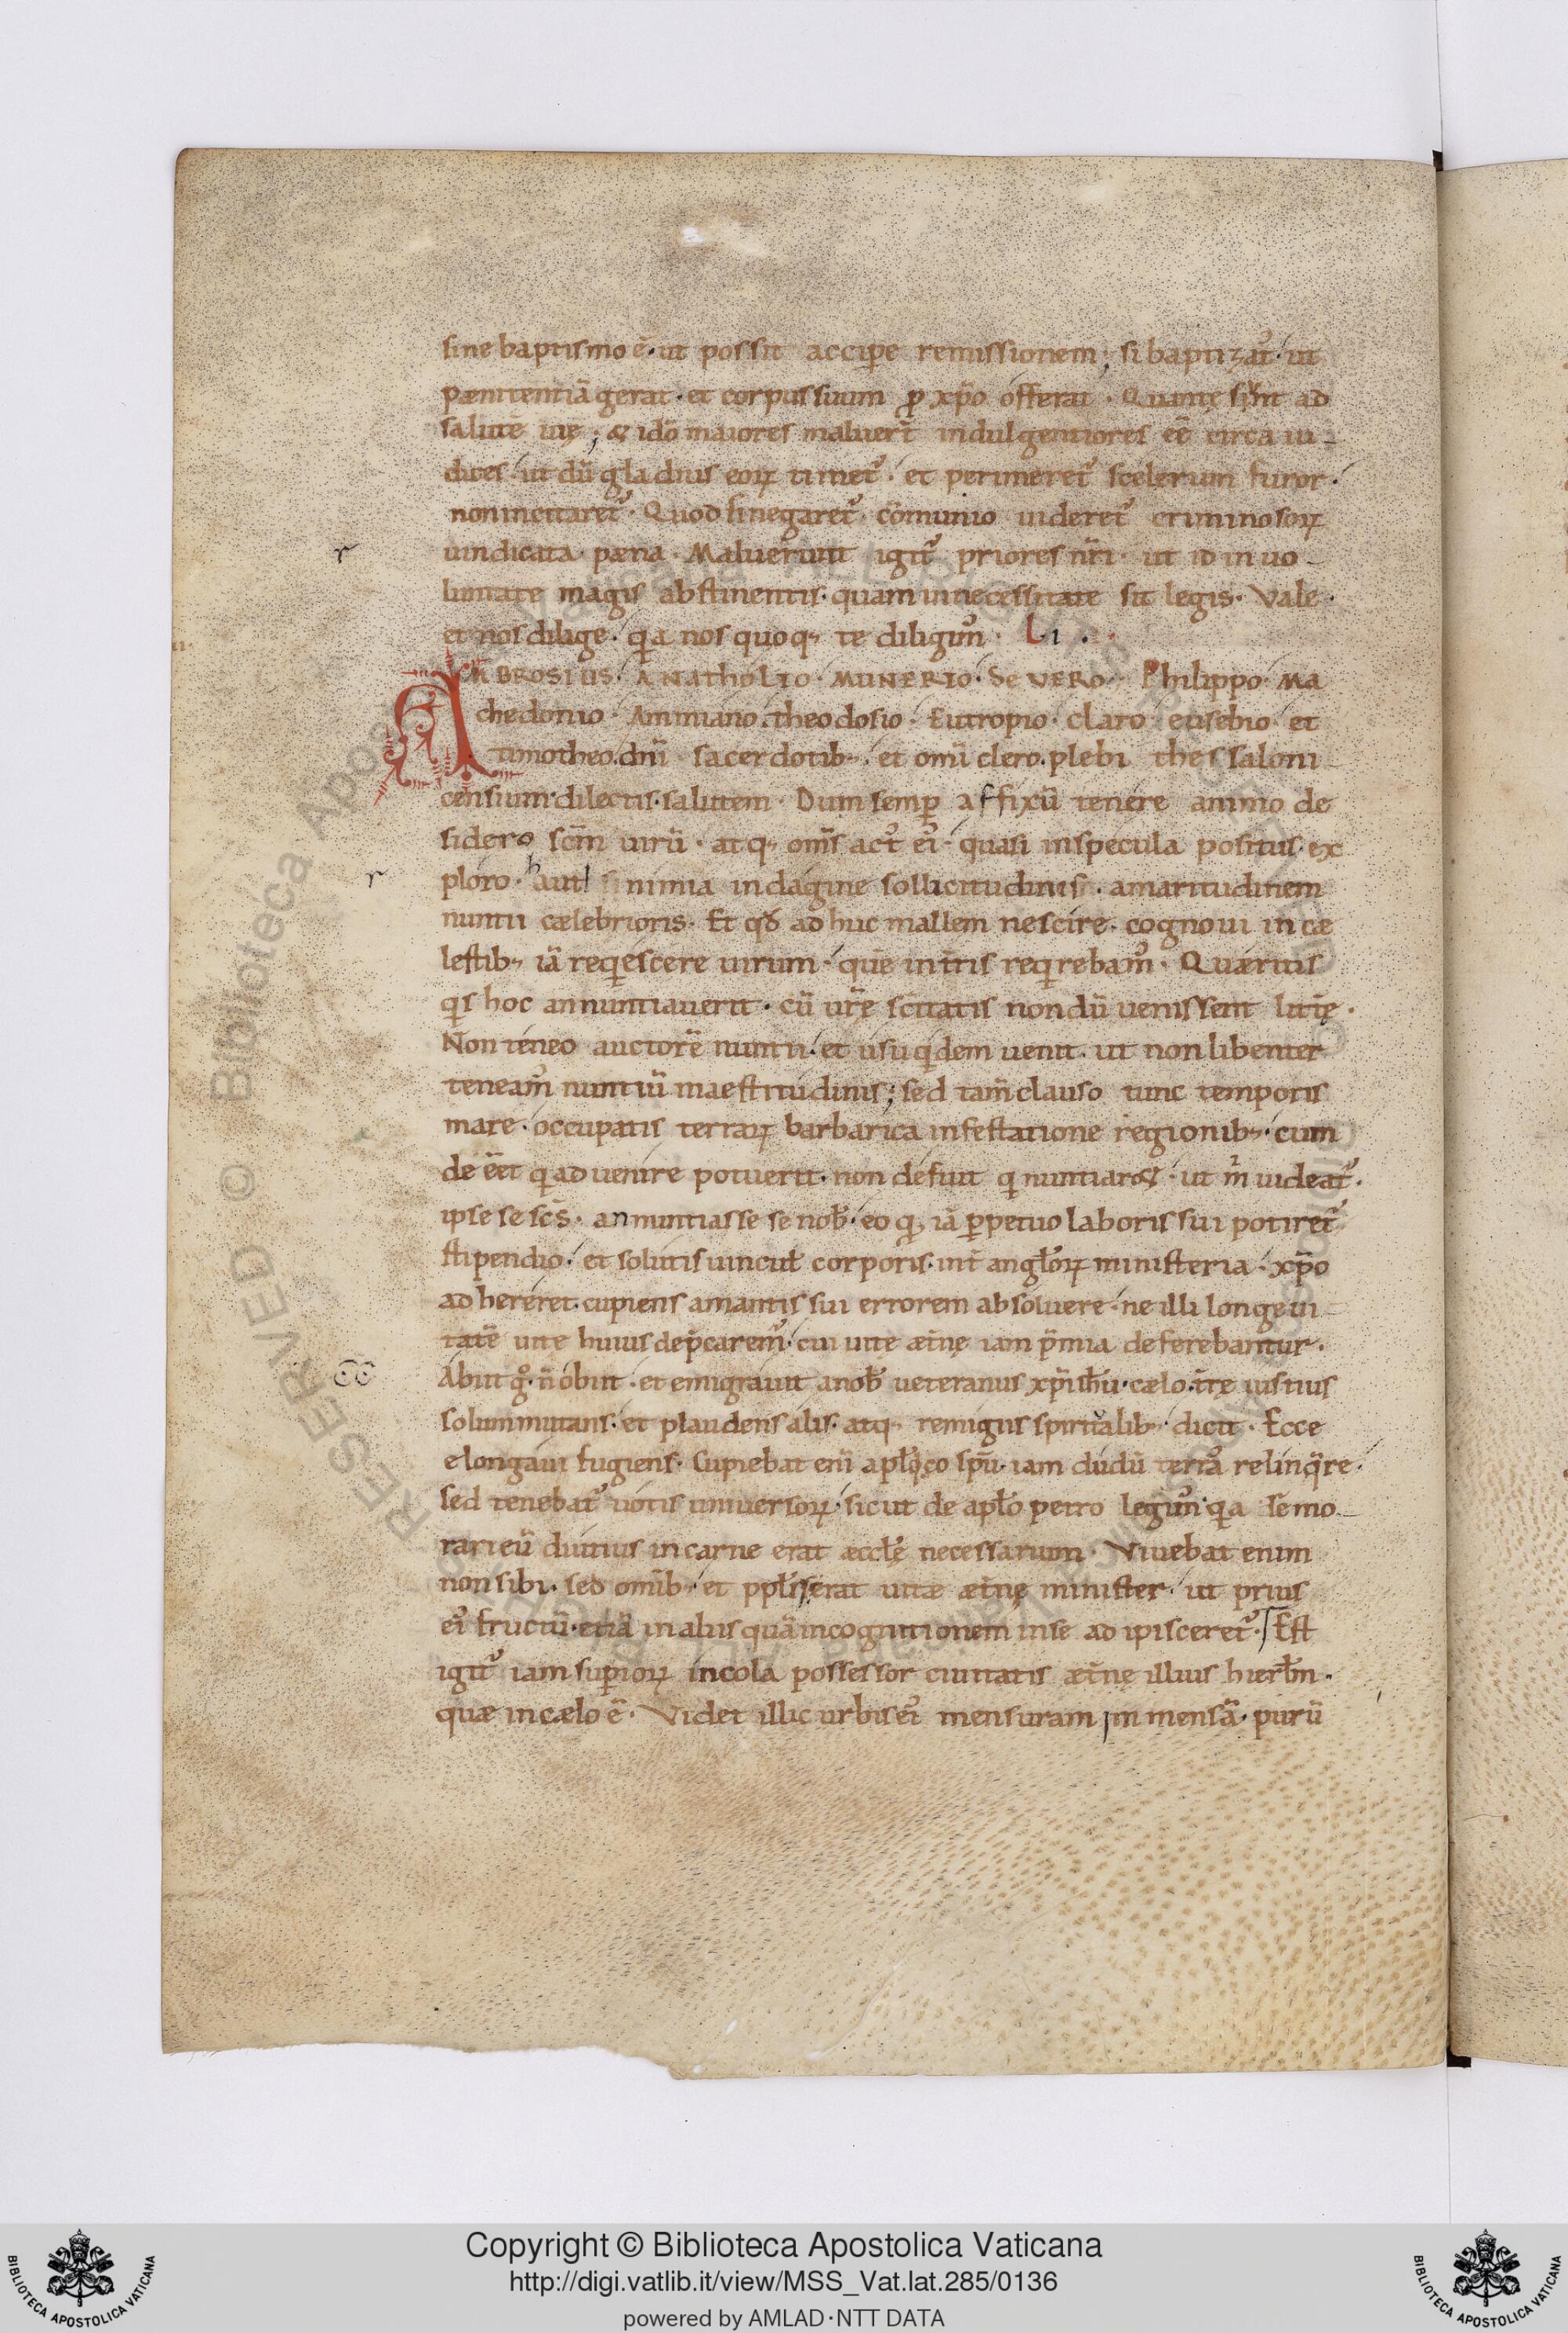 sine baptismo ē· ut possit accipe remissionem; si baptizat᷒· ut
pænitentiā gerat· et corpus suum ꝓ xp̄o offerat· Quantę sunt ad
salutē uię; & idō maiores maluer̄t indulgentiores eē circa iu-
dices· ut dū gladius eoꝝ timet᷒· et perimeret᷒ scelerum furor·
non incitaret᷒· Quod si negaret᷒· cōmunio uideret᷒ criminosoꝝ
uindicata pæna· Maluerunt igit᷒ priores nr̄i· ut id in uo-
luntate magis abstinentis· quam in necessitate sit legis· Vale·
et nos dilige· qa nos quoq; te diligim᷒· L·i·
AMBROSIUS· ANATHOLIO· MUNERIO· SEVERO· Philippo· Ma
chedonio· Ammiano· theodosio· Eutropio· claro· eusebio· et
timotheo· dn̄i sacerdotib; et omī clero· plebi thessaloni-
censium· dilectis· salutem· Dum semp affixū tenere animo de
sidero scm̄ uirū· atq; om̄s act᷒ ei᷒· quasi in specula positus ex
ploro· haut nimia indagine sollicitudinis· amaritudinem
nuntii cælebrioris· Et qd̄ adhuc mallem nescire· cognoui in cæ
lestib; iā reqescere uirum· quē in tr̄is reqrebam᷒· Quæritis
qs hoc annuntiauerit· cū ur̄e sc̄itatis nondū uenissent litt̄ę·
Non teneo auctorē nuntii· et usu qdem uenit· ut non libenter
teneam᷒ nuntiū maestitudinis; sed tam̄ clauso tunc temporis
mare· occupatis terraꝝ barbarica infestatione regionib;· cum
deēet q aduenire potuerit· non defuit q nuntiar& · ut m̄ uideat᷒·
ipse se sc̄s· annuntiasse se nob̄· eo q iā ppetuo laboris sui potiret᷒
stipendio· et solutis uincul̄ corporis· int̄ angl̄oꝝ ministeria· xp̄o
adhereret· cupiens amantis sui errorem absoluere· ne illi longeui-
tatē uite huius dep̄carem᷒· cui uite æt̄nę iam p̄mia deferebantur·
Abiit gͦ· n̄ obiit· et emigrauit a nob̄ ueteranus xp̄i ih̄u· cælo· tr̄ę iustius
solum mutans· et plaudens alis· atq; remigiis spiritalib; dicit· Ecce
elongaui fugiens· Cupiebat enī apl̄ico sp̄u· iam dudū terrā relinqre·
sed tenebat᷒ uotis uniuersoꝝ· sicut de apl̄o petro legim᷒· qa se mo-
rari eū diutius in carne erat æccl̄ę necessarium· Viuebat enim
non sibi· sed omīb;· et ppl̄is erat uitæ æt̄nę minister· ut prius
ei᷒ fructū· etiā in aliis quā in cognitionem in se adipisceret᷒· Est
igit᷒ iam supioꝝ incola possessor ciuitatis æt̄nę illius hierl̄m·
quæ in cælo ē· Videt illic urbis ei᷒ mensuram inmensā· purū
Copyright © Biblioteca Apostolica Vaticana
http://digi.vatlib.it/view/MSS_Vat.lat.285/0136
powered by AMLAD·NTT DATA